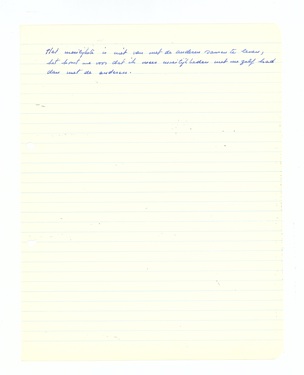 Het moeilijkste is niet van met de anderen samen te leven,
het komt me voor dat ik meer moeilijkheden met me zelf had
dan met de anderen.